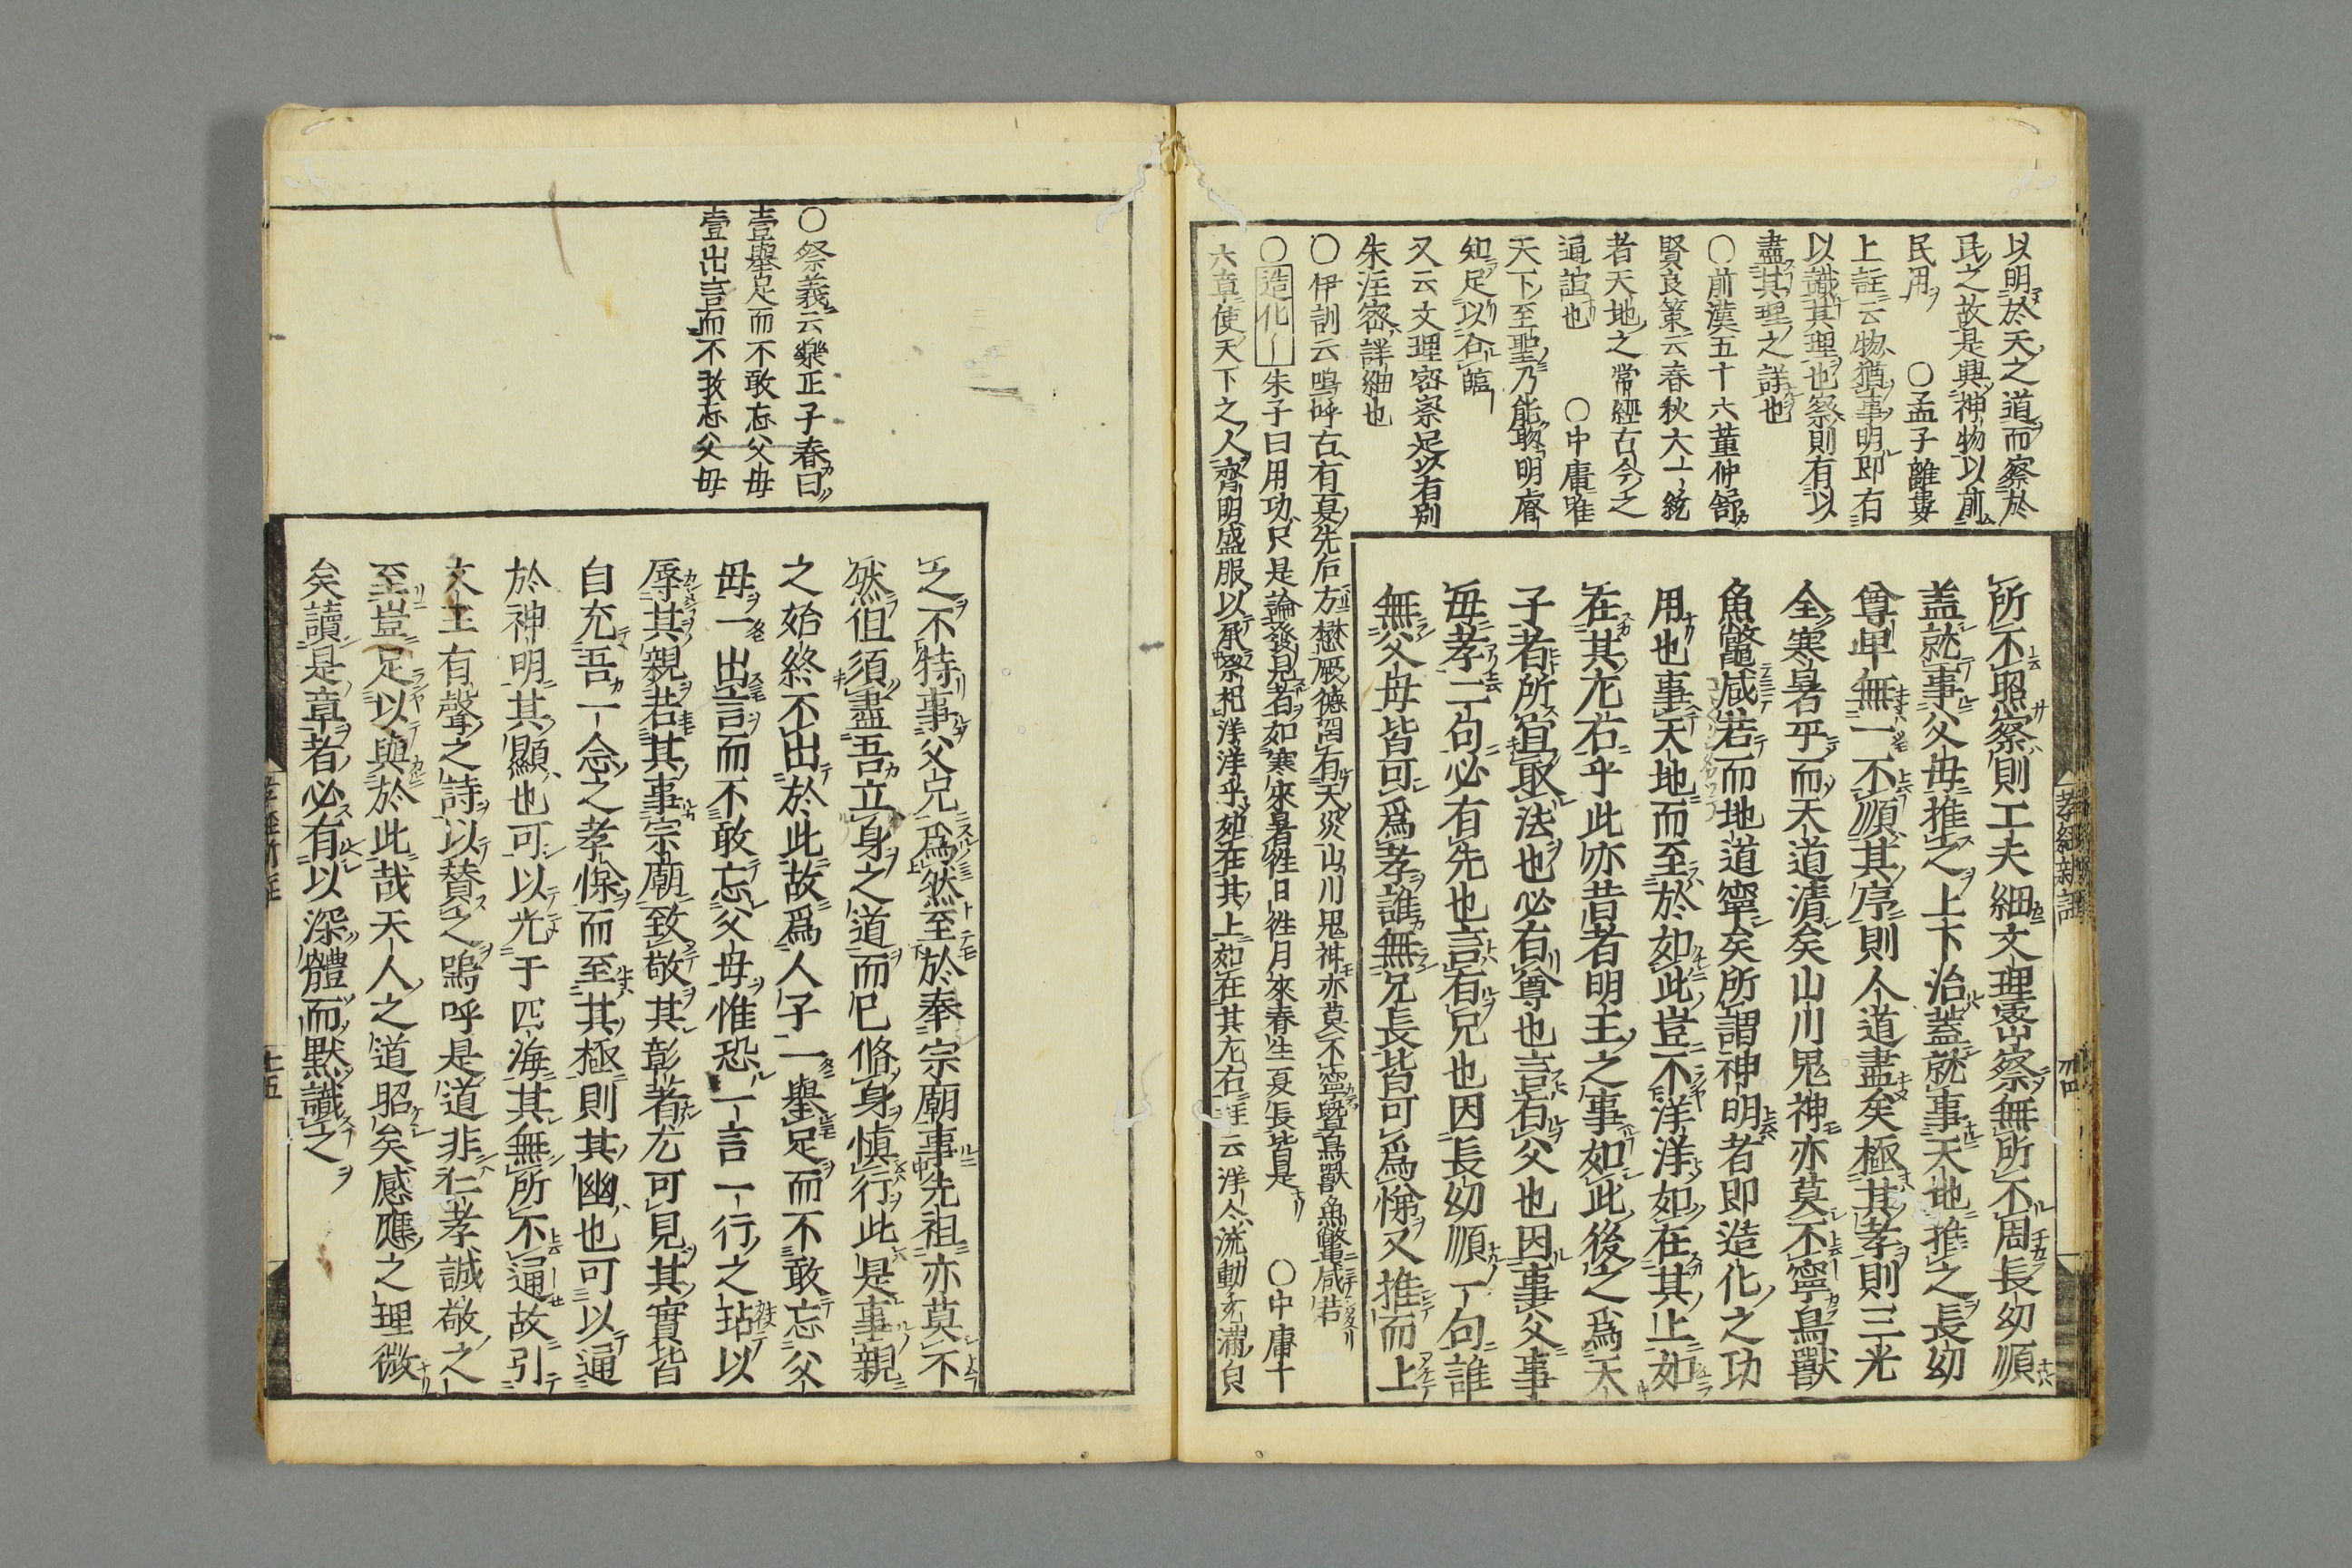 以明於天之道而察於
民之故是興神物以前
民用　〇孟子離婁
上註云物猶事明即有
以識其理也察則有以
盡其理之詳也
〇前漢五十六董仲舒
賢良策云春秋大一統
者天地之常經古今之
通誼也　〇中庸唯
天下至聖乃能聰明睿
知足以有臨
又云文理密察足以有別
朱注密詳細也
〇伊訓云嗚呼古有夏先后方懋厥德罔有天災山川鬼神亦莫不寧曁鳥獸魚鼈咸若
〇造化〡朱子曰用功只是論發見者如寒來暑徃日徃月來春生夏長皆是　〇中庸十
六章使天下之人齊明盛服以承祭祀洋洋乎如在其上如在其左右註云洋々流動充滿
所不照察則工夫細文理密察無所不周長幼順
盖就事父母推之上下治蓋就事天地推之長幼
尊卑無一不順其序則人道盡矣極其孝則三光
全寒暑乎而天道清矣山川鬼神亦莫不寧鳥獸
魚鼈咸若而地道寧矣所謂神明者即造化之功
用也事天地而至於如此豈不洋洋如在其上如
在其左右乎此亦昔者明王之事如此後之爲天
子者所宜取法也必有尊也言有父也因事父事
母孝一句必有先也言有兄也因長幼順一句誰
無父母皆可爲孝誰無兄長皆可爲悌又推而上
孝經新註
〇祭義云樂正子春曰
壹舉足而不敢忘父母
壹出言而不敢忘父母
之不特事父兄爲然至於奉宗廟事先祖亦莫不
然但須盡吾立身之道而已脩身愼行此是事親
之始終不出於此故爲人子一舉足而不敢忘父
母一出言而不敢忘父母惟恐一言一行之玷以
辱其親若其事宗廟致敬其彰著尤可見其實皆
自充吾一念之孝悌而至其極則其幽也可以通
於神明其顯也可以光于四海其無所不通故引
文王有聲之詩以賛之嗚呼是道非仁孝誠敬之
至豈足以與於此哉天人之道昭矣感應之理微
矣讀是章者必有以深體而默識之